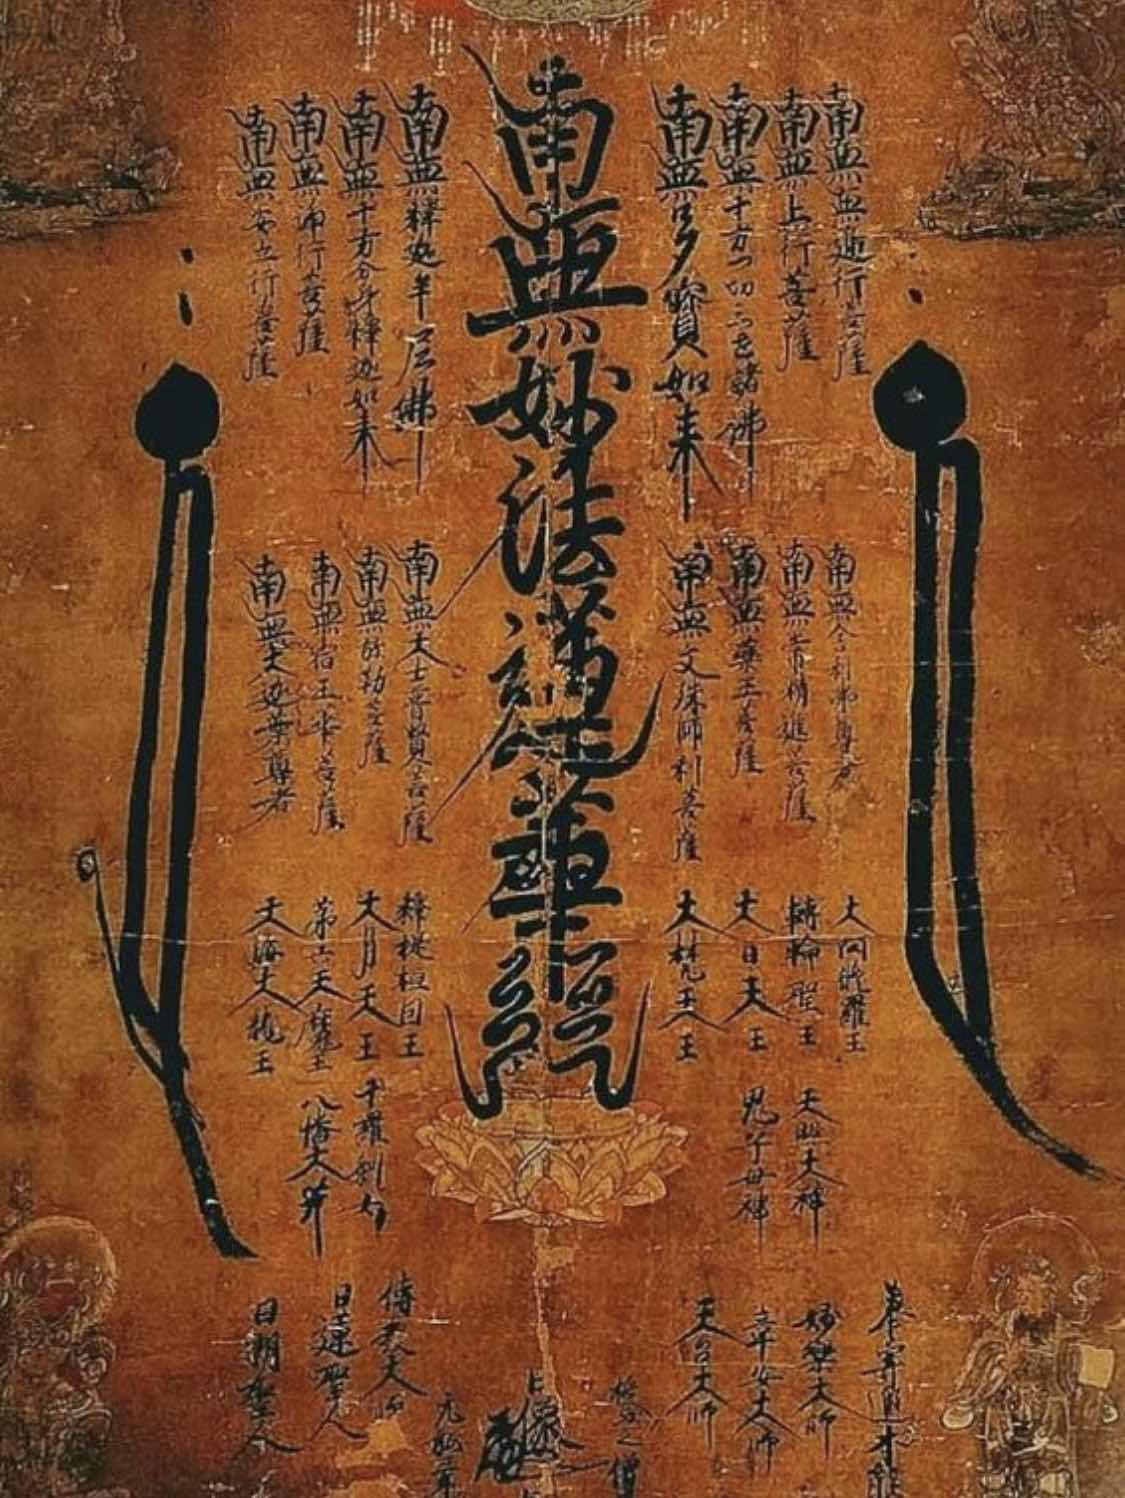 南無妙法蓮華経
南無無邊行菩薩
南無上行菩薩
南無十方一切諸佛
南無多寳如来
南無釋迦牟尼佛
南無十方分身釋迦如来
南無浄行菩薩
南無安立行菩薩
南無舎利弗尊者
南無常精進菩薩
南無薬王菩薩
南無文殊師利菩薩
南無大士普賢菩薩
南無弥勒菩薩
南無宿王華菩薩
南無大迦葉尊者
大阿脩羅王
轉輪聖王
大日天王
大梵天王
釋提桓因王
大月天王
第六天魔王
大龍王
天照大神
鬼子母神
十羅刹女
八幡大菩薩
妙樂大師
章安大師
天台大師
傳教大師
日蓮聖人
日朗聖人